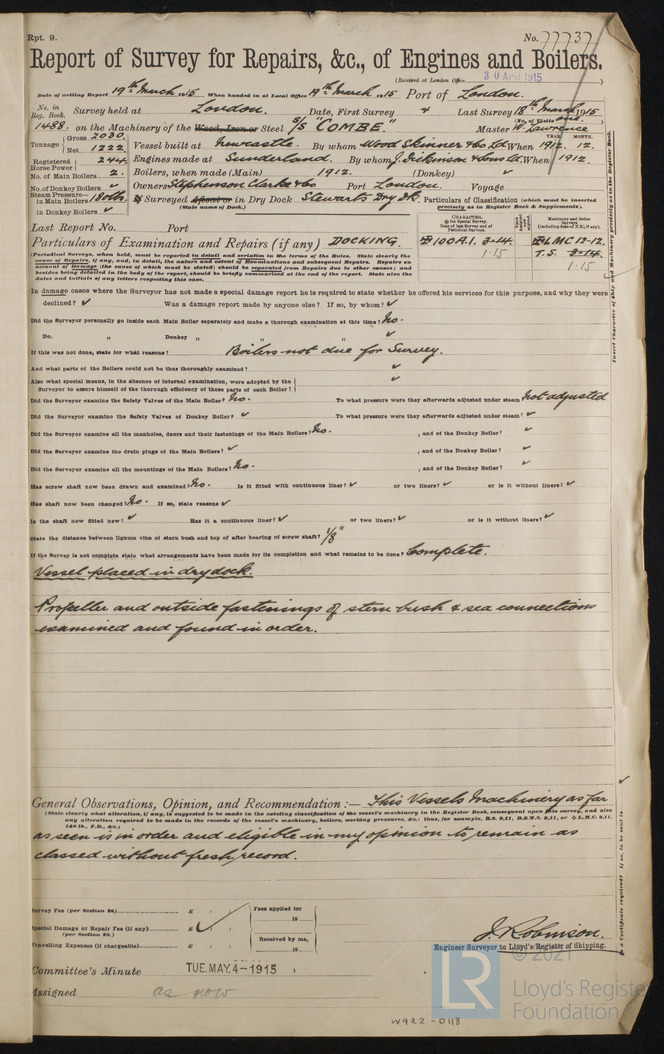 Rpt. 9.
No. 77737
Report of Survey for Repairs, &c., of Engines and Boilers.
(Received at London Office 30 APR 1915)
Date of writing Report 19th March 1915 When handed in at Local Office 19th March 1915 Port of London.
No. in Reg. Book. Survey held at London. Date, First Survey Last Survey 18th March 1915
(No. of Visits one.)
1488. on the Machinery of the Wood, Iron or Steel S/S "COMBE." Master W. Lawrence
Tonnage Gross 2030. Net 1222 Vessel built at Newcastle. By whom Wood Skinner & Co Ld. When YEAR. 1912. MONTH. 12.
Registered Horse Power 244 Engines made at Sunderland. By whom J. Dickinson & Sons Ld. When 1912.
No. of Main Boilers 2. Boilers, when made (Main) 1912. (Donkey) ✓
No. of Donkey Boilers ✓ Owners Stephenson Clarke & Co Port London. Voyage
Steam Pressure— in Main Boilers 180 lbs Surveyed Afloat or in Dry Dock Stewarts Dry Dk.
(State name of Dock.)
in Donkey Boilers ✓
Particulars of Classification (which must be inserted precisely as in Register Book & Supplements).
Last Report No. Port
CHARACTER, ✠ for Special Survey. Date of last Survey and of Periodical Surveys.
Machinery and Boiler Surveys (including date of N.B., if any).
Particulars of Examination and Repairs (if any) DOCKING.
✠ 100A.1. 3-14. 1·15
✠ LMC 12-12. T.S. 3-14. 1·15
(Periodical Surveys, when held, must be reported in detail and seriatim in the terms of the Rules. State clearly the
cause of Repairs, if any, and, in detail, the nature and extent of Examinations and subsequent Repairs. Repairs on
account of Damage (the cause of which must be stated) should be separated from Repairs due to other causes; and
besides being detailed in the body of the report, should be briefly summarised at the end of the report. State also the
dates and initials of any letters respecting this case.
In damage cases where the Surveyor has not made a special damage report he is required to state whether he offered his services for this purpose, and why they were
declined? ✓ Was a damage report made by anyone else? If so, by whom? ✓
Did the Surveyor personally go inside each Main Boiler separately and make a thorough examination at this time? No.
Do. „ Donkey „ „ „ ✓
If this was not done, state for what reasons? Boilers not due for Survey.
And what parts of the Boilers could not be thus thoroughly examined? ✓
Also what special means, in the absence of internal examination, were adopted by the
Surveyor to assure himself of the thorough efficiency of those parts of each Boiler? ✓
Did the Surveyor examine the Safety Valves of the Main Boiler? No. To what pressure were they afterwards adjusted under steam? Not adjusted
Did the Surveyor examine the Safety Valves of Donkey Boiler? ✓ To what pressure were they afterwards adjusted under steam? ✓
Did the Surveyor examine all the manholes, doors and their fastenings of the Main Boilers? No. , and of the Donkey Boiler? ✓
Did the Surveyor examine the drain plugs of the Main Boilers? ✓ , and of the Donkey Boiler? ✓
Did the Surveyor examine all the mountings of the Main Boilers? No. , and of the Donkey Boiler? ✓
Has screw shaft now been drawn and examined? No. Is it fitted with continuous liner? ✓ or two liners? ✓ or is it without liners? ✓
Has shaft now been changed? No. If so, state reasons ✓
Is the shaft now fitted new? ✓ Has it a continuous liner? ✓ or two liners? ✓ or is it without liners? ✓
State the distance between lignum vitæ of stern bush and top of after bearing of screw shaft? 1/8"
If the Survey is not complete state what arrangements have been made for its completion and what remains to be done? Complete.
Vessel placed in dry dock.
Propeller and outside fastenings of stern bush & sea connections
examined and found in order.
General Observations, Opinion, and Recommendation :— This Vessels Machinery as far
(State clearly what alteration, if any, is suggested to be made in the existing classification of the vessel's machinery in the Register Book, consequent upon this survey, and also
any alteration required to be made in the records of the vessel's machinery, boilers, working pressures, &c.; thus, for example, B.S. 9,11. B.&M.S. 9,11, or ✠ L.M.C. 9,11.
as seen is in order and eligible in my opinion to remain as
classed without fresh record.
Survey Fee (per Section 28) £
Special Damage or Repair Fee (if any) £ (per Section 28.)
Travelling Expenses (if chargeable) £
Fees applied for 19
Received by me, 19
J. Robinson.
Engineer Surveyor to Lloyd's Register of Shipping.
Committee's Minute TUE. MAY. 4 - 1915
Assigned as now
W922-0118
© 2021
LR
Lloyd's Register
Foundation
Insert Character of Ship and Machinery precisely as in the Register Book.